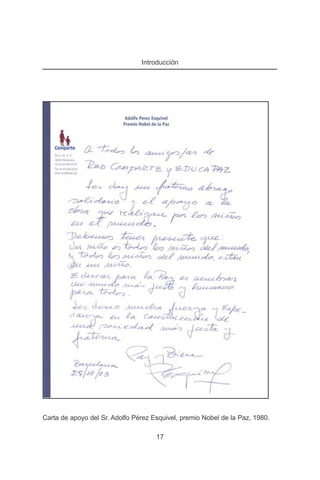 Introducción
Adolfo Perez Esquivel
Premio Nobel de la Paz
Comparte
A todos los amigos/as de
Red Comparte y EDUCAPAZ
Les doy un fraterno abrazo
solidario y el apoyo a la
obra que realizan por los niños
en el mundo.
Debemos tener presente que:
Un niño es todos los niños del mundo,
y todos los niños del mundo, estan
en un niño.
Educar para la Paz es sembrar
un mundo más justo y humano
para todos.
Les deseo mucha fuerza y Espe-
ranza en la construcción de
una sociedad más justa y
fraterna.
Paz y Bien
Barcelona
Esquivel
Carta de apoyo del Sr. Adolfo Pérez Esquivel, premio Nobel de la Paz, 1980.
17